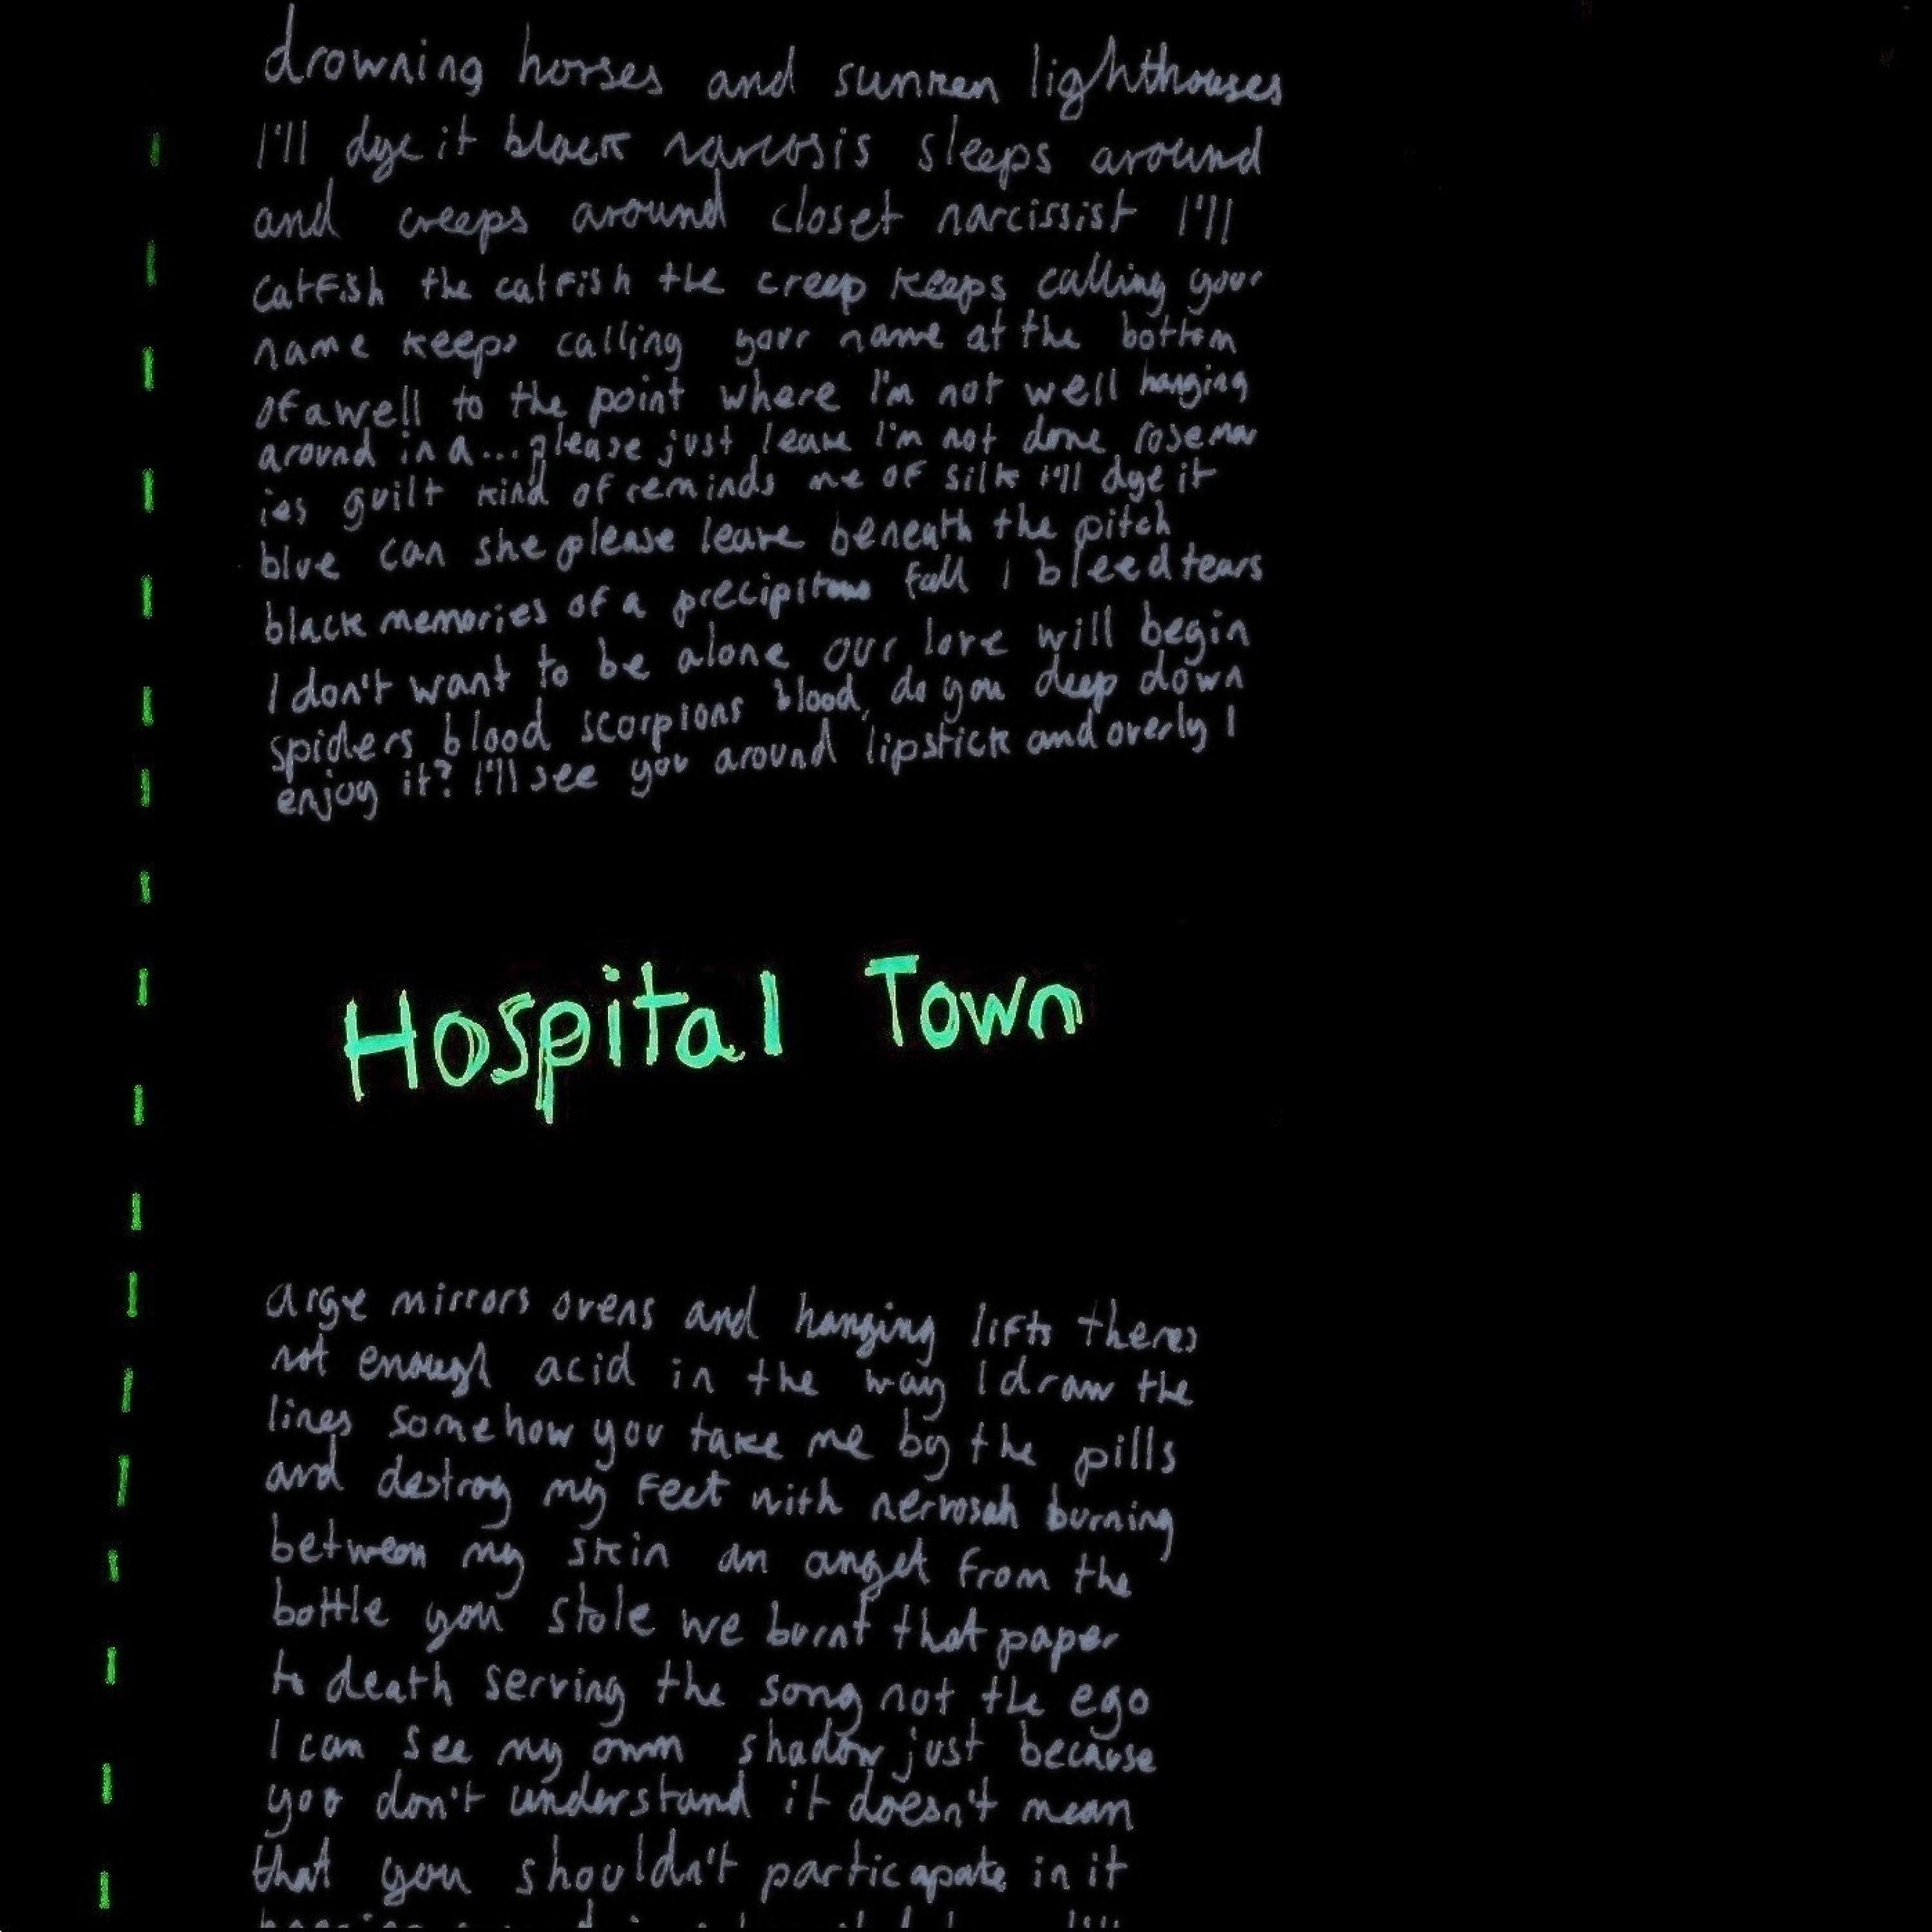 drowning horses and sunken lighthouses
I'll dye it black narcosis sleeps around
and creeps around closet narcissist I'll
catfish the catfish the creep keeps calling your
name keeps calling your name at the bottom
of a well to the point where I'm not well hanging
around in a... please just leave I'm not done rosemar
ies guilt kind of reminds me of silk I'll dye it
blue can she please leave beneath the pitch
black memories of a precipitous fall I bleed tears
I don't want to be alone our love will begin
spiders blood scorpions blood, do you deep down
enjoy it? I'll see you around lipstick and overly I
Hospital Town
arge mirrors ovens and hanging lifts theres
not enough acid in the way I draw the
lines somehow you take me by the pills
and destroy my feet with nervosah burning
between my skin an angel from the
bottle you stole we burnt that paper
to death serving the song not the ego
I can see my own shadow just because
you don't understand it doesn't mean
that you shouldn't particapate in it